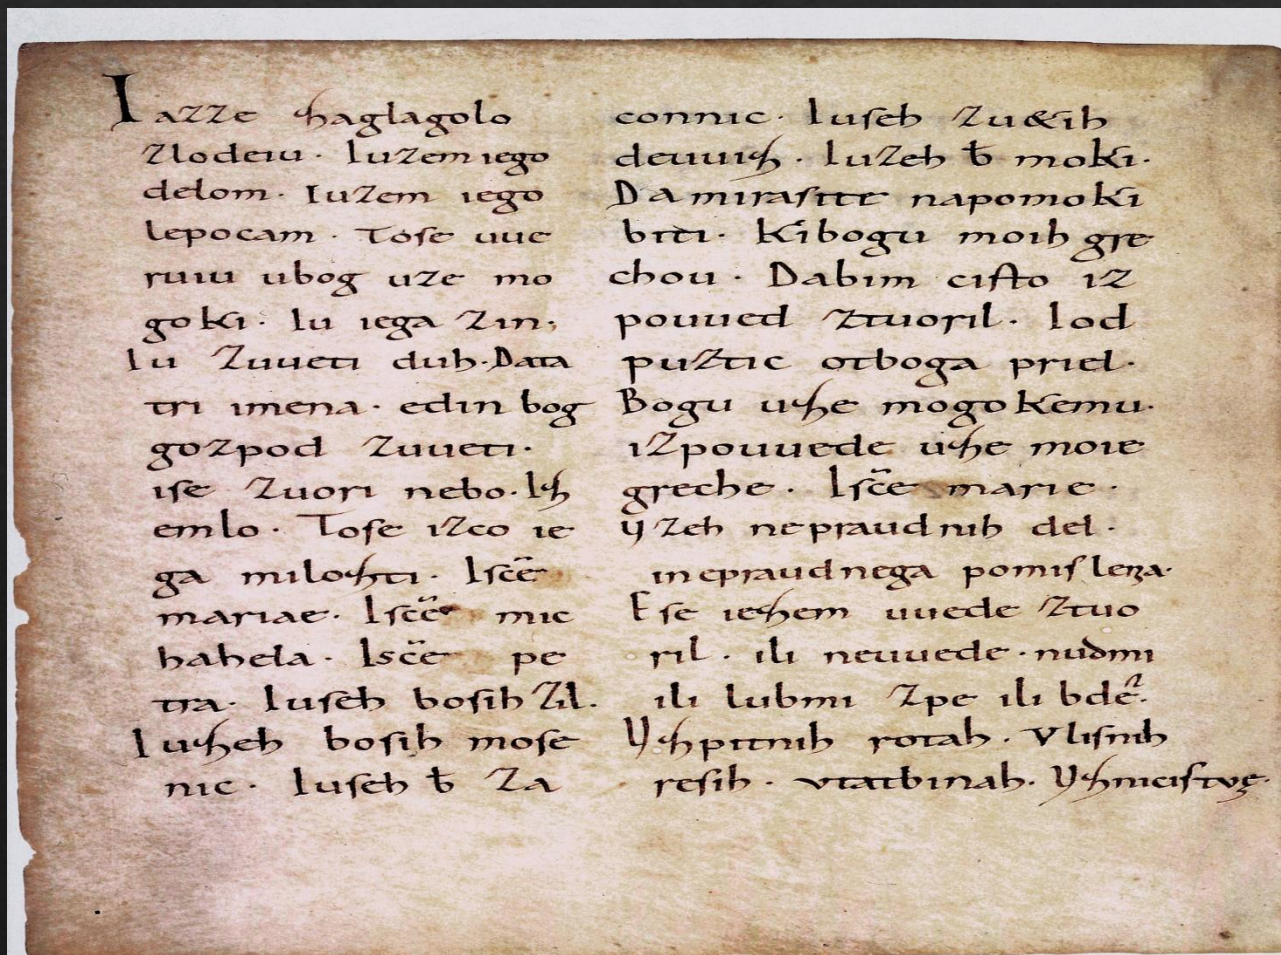 Iazze ꜩaglagolo
zlodeiu · Iuzem iego
delom · Iuzem iego
lepocam · Tóse uue
ruiu ubog uze mo
goki · Iu iega zin;
Iu zuueti duh · Data
tri imena · edin bog
gozpod zuueti ·
ise zuori nebo · Iꜩ
emlo · Tose izco ie
ga miloꜩti · Iscę̄
mariae · Iscę̄ mic
hahela · Iscę̄ pe
tra · Iuseh bosih zil.
Iuꜩeh bosih mose
nic · Iuseh b̄ za
connic · Iuseh zu&ih
deuuiꜩ · Iuzeh b̄ moki ·
Da mirastte napomoki
biti · Ki bogu moih gre
chou · Dabim cisto iz
pouued ztuoril · Iod
puztic otboga priel ·
Bogu uꜩe mogokemu ·
izpouuede uꜩe moie
greche · Iscē marie ·
Y zeh nepraudnih del ·
inepraudnega pomislenza ·
Ese ieꜩem uuede ztuo
ril · ili neuuede · nudmi
ili lubmi zpe ili bdē.
Y ꜩpitnih rotah · Vlisnih
resih · vtatbinah · Y ꜩnicistvę ·